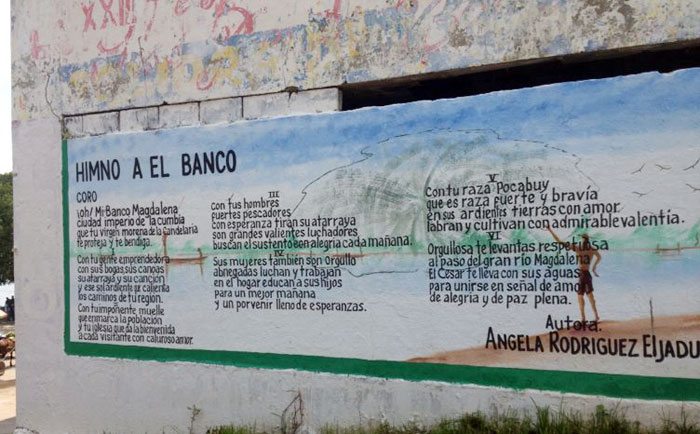 HIMNO A EL BANCO
CORO
¡Oh! Mi Banco Magdalena
ciudad imperio de la cumbia
que tu virgen morena de la Candelaria
te proteja y te bendiga.
Con tu gente emprendedora
con sus bogas, sus canoas
su atarraya y su canción
y ese sol ardiente que calienta
los caminos de tu región.
Con tu imponente muelle
que enmarca la población
y tu iglesia que da la bienvenida
a cada visitante con caluroso amor.
III
Con tus hombres
fuertes pescadores
con esperanza tiran su atarraya
son grandes valientes luchadores
buscan el sustento con alegría cada mañana.
IV
Sus mujeres también son Orgullo
abnegadas luchan y trabajan
en el hogar educan a sus hijos
para un mejor mañana
y un porvenir lleno de esperanzas.
V
Con tu raza Pocabuy
que es raza fuerte y bravía
en sus ardientes tierras con amor
labran y cultivan con admirable valentía.
VI
Orgullosa te levantas respetuosa
al paso del gran río Magdalena
El Cesar te lleva con sus aguas
para unirse en señal de amor
de alegría y de paz plena.
Autora:
ANGELA RODRIGUEZ ELJADU